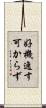 好機逸す可からず